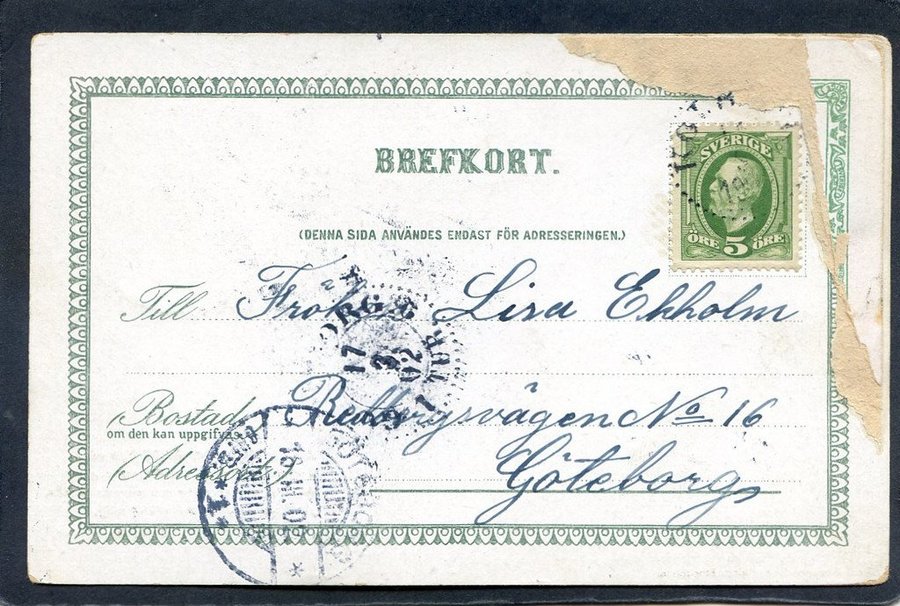 BREFKORT.
SVERIGE
ÖRE 5 ÖRE
(DENNA SIDA ANVÄNDES ENDAST FÖR ADRESSERINGEN.)
Till Frök. Lisa Ekholm
Bostad Redbergsvägen No 16
om den kan uppgifvas
Göteborg
17